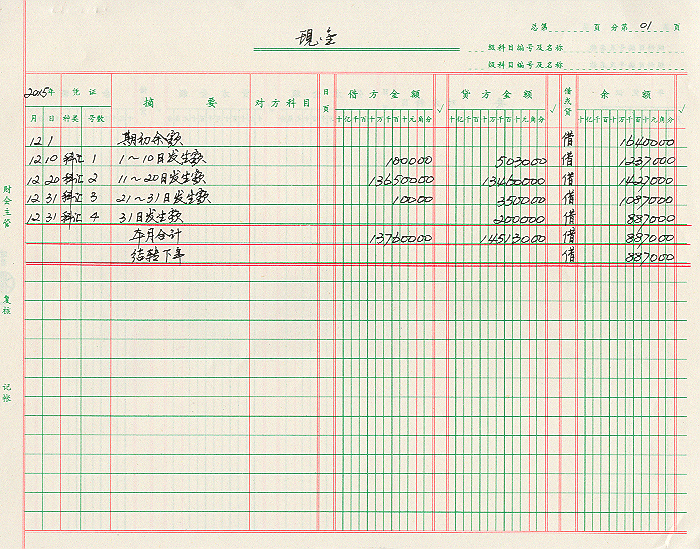 总第 页 分第 01 页
现金
级科目编号及名称
级科目编号及名称
2015年 凭证 摘要 对方科目 日页 借方金额 √ 贷方金额 √ 借或贷 余额 √
月 日 种类 号数 十亿千百十万千百十元角分 十亿千百十万千百十元角分 十亿千百十万千百十元角分
12 1 期初余额 借 1640000
12 10 科汇 1 1~10日发生额 100000 503000 借 1237000
12 20 科汇 2 11~20日发生额 13650000 13460000 借 1427000
12 31 科汇 3 21~31日发生额 10000 350000 借 1087000
12 31 科汇 4 31日发生额 200000 借 887000
本月合计 13760000 14513000 借 887000
结转下年 借 887000
财会主管
复核
记帐